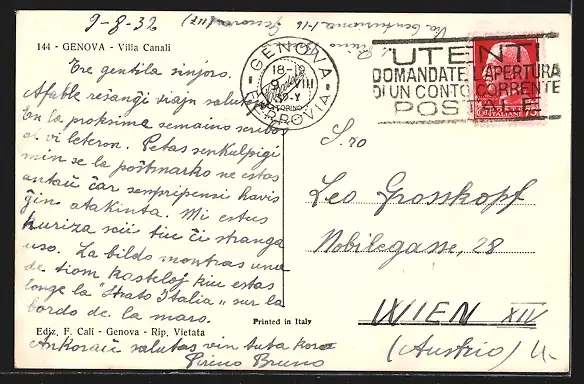 9-8-32
144 - GENOVA - Villa Canali
Tre gentila sinjoro.
Afable resangi viajn salutojn
En la proksima semajno scribos
al vi leteron. Petas senkulpigi
min se la poŝtmarko ne estas
antaŭ ĉar senpripensi havis
ĝin atakinta. Mi estus
kuriza tiu ĉi stranga
uso. La bildo montras unu
de tiom kasteloj kiu estas
longe la "Strato Italia" sur la
bordo de la maro.
Ediz. F. Cali - Genova - Rip. Vietata
Ankoraŭ salutas vin tuta kora
Pirino Bruno
Printed in Italy
GENOVA
18-19
9 VIII
32-X
FERROVIA
UTENTI
DOMANDATE L'APERTURA
DI UN CONTO CORRENTE
POSTALE
POSTE ITALIANE
75
S.ro
Leo Grosskopf
Nobilegasse, 28
WIEN XIV
(Austrio)